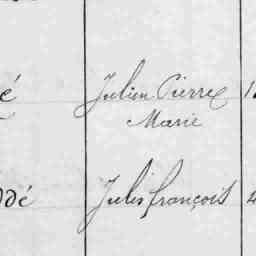 é Julien Pierre 1
Marie
ddé Jules françois 4